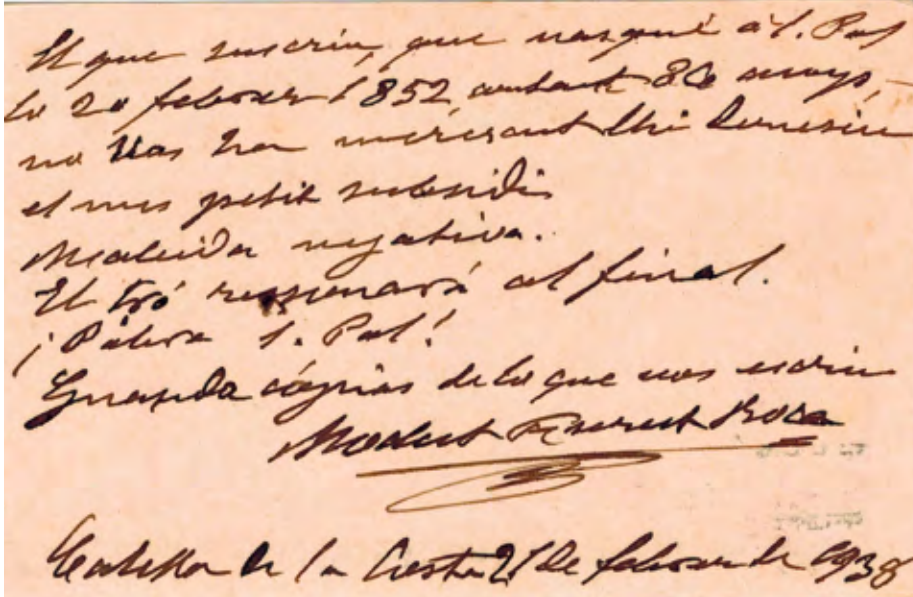 El que suscriu, que nasqué á S. Pol
lo 20 febrer 1852, contant 86 anys,
no llas ha merescut
el mes petit subsidi
negativa.
El tró ressonará al final.
¡Pobra S. Pol!
Guarda cópias de lo que vos escriu
Modest Roca
Calella de la Costa 21 de febrer de 1938